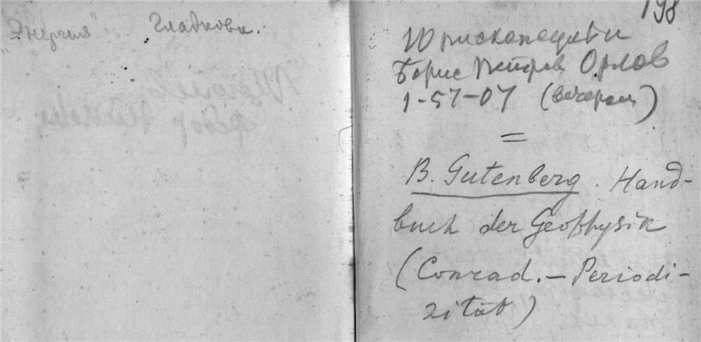 "Энергия" Гладкова.
198
Юрисконсульт
Борис Петров Орлов
1-57-07 (вечером)
=
B. Gutenberg. Hand-
buch der Geophysik
(Conrad. – Periodi-
zität)